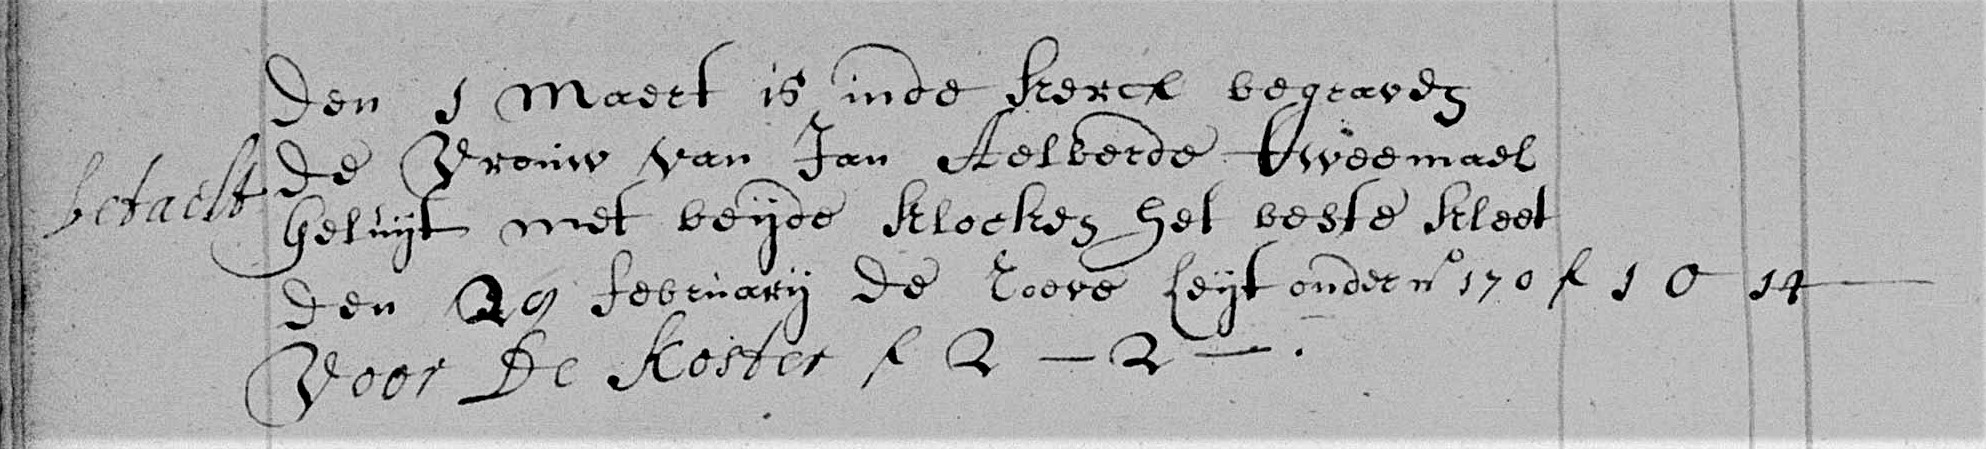 den 1 Maert is inde kerck begraven
betaelt de Vrouw van Jan Aelberde tweemael
geluijt met beijde klocken het beste kleet
den 29 februarij de roeve leijt onder nº 170 f 10 14 —
Voor De Koster f 2 — 2 — .